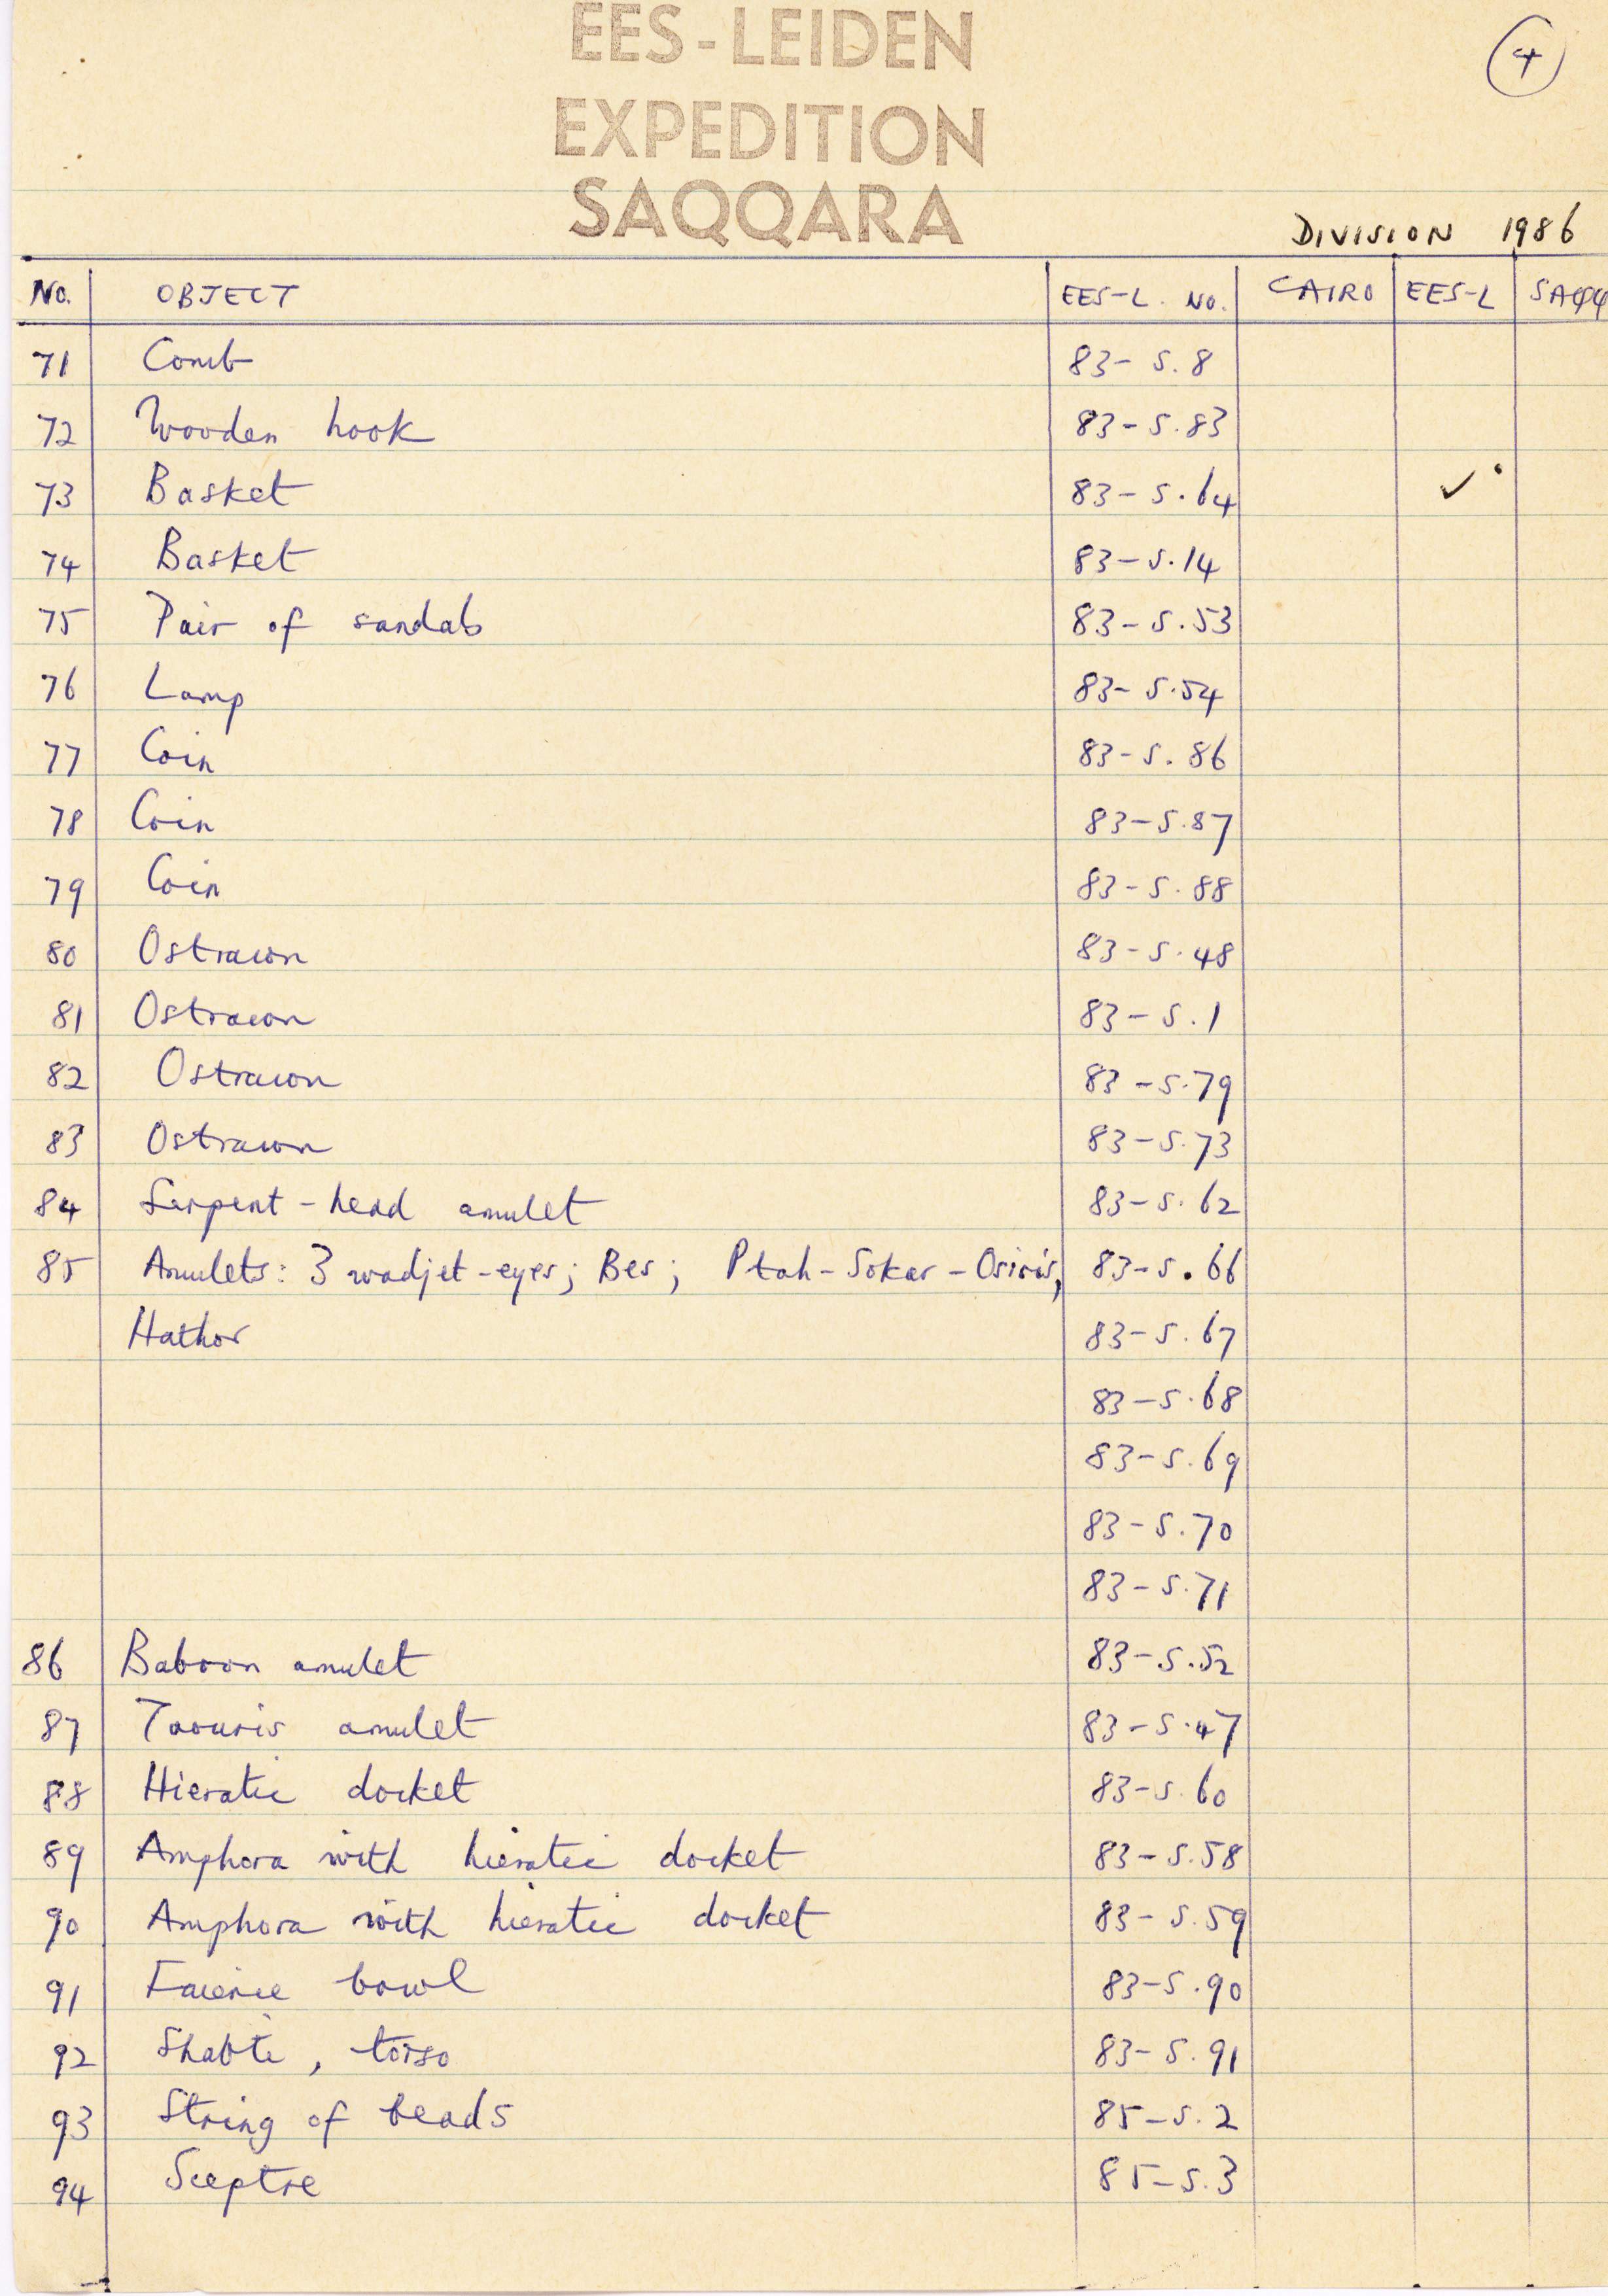 EES-LEIDEN
EXPEDITION
SAQQARA
4
DIVISION 1986
No. OBJECT EES-L. NO. CAIRO EES-L SAQQ
71 Comb 83-S.8
72 Wooden hook 83-S.83
73 Basket 83-S.64 ✓
74 Basket 83-S.14
75 Pair of sandals 83-S.53
76 Lamp 83-S.54
77 Coin 83-S.86
78 Coin 83-S.87
79 Coin 83-S.88
80 Ostracon 83-S.48
81 Ostracon 83-S.1
82 Ostracon 83-S.79
83 Ostracon 83-S.73
84 Serpent-head amulet 83-S.62
85 Amulets: 3 wadjet-eyes; Bes; Ptah-Sokar-Osiris, 83-S.66
Hathor 83-S.67
83-S.68
83-S.69
83-S.70
83-S.71
86 Baboon amulet 83-S.52
87 Taouris amulet 83-S.47
88 Hieratic docket 83-S.60
89 Amphora with hieratic docket 83-S.58
90 Amphora with hieratic docket 83-S.59
91 Faience bowl 83-S.90
92 Shabti, torso 83-S.91
93 String of beads 85-S.2
94 Sceptre 85-S.3